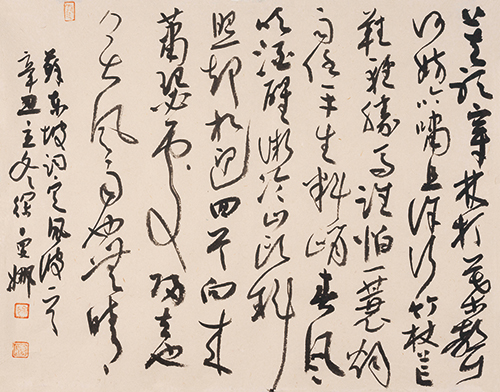 莫聽穿林打葉聲
何妨吟嘯且徐行竹杖芒
鞋輕勝馬誰怕一蓑烟
雨任平生料峭春風
吹酒醒微冷山頭斜
照却相迎回首向来
蕭瑟處歸去也
無風雨也無晴
蘇東坡詞定風波一首
辛丑立冬里娜